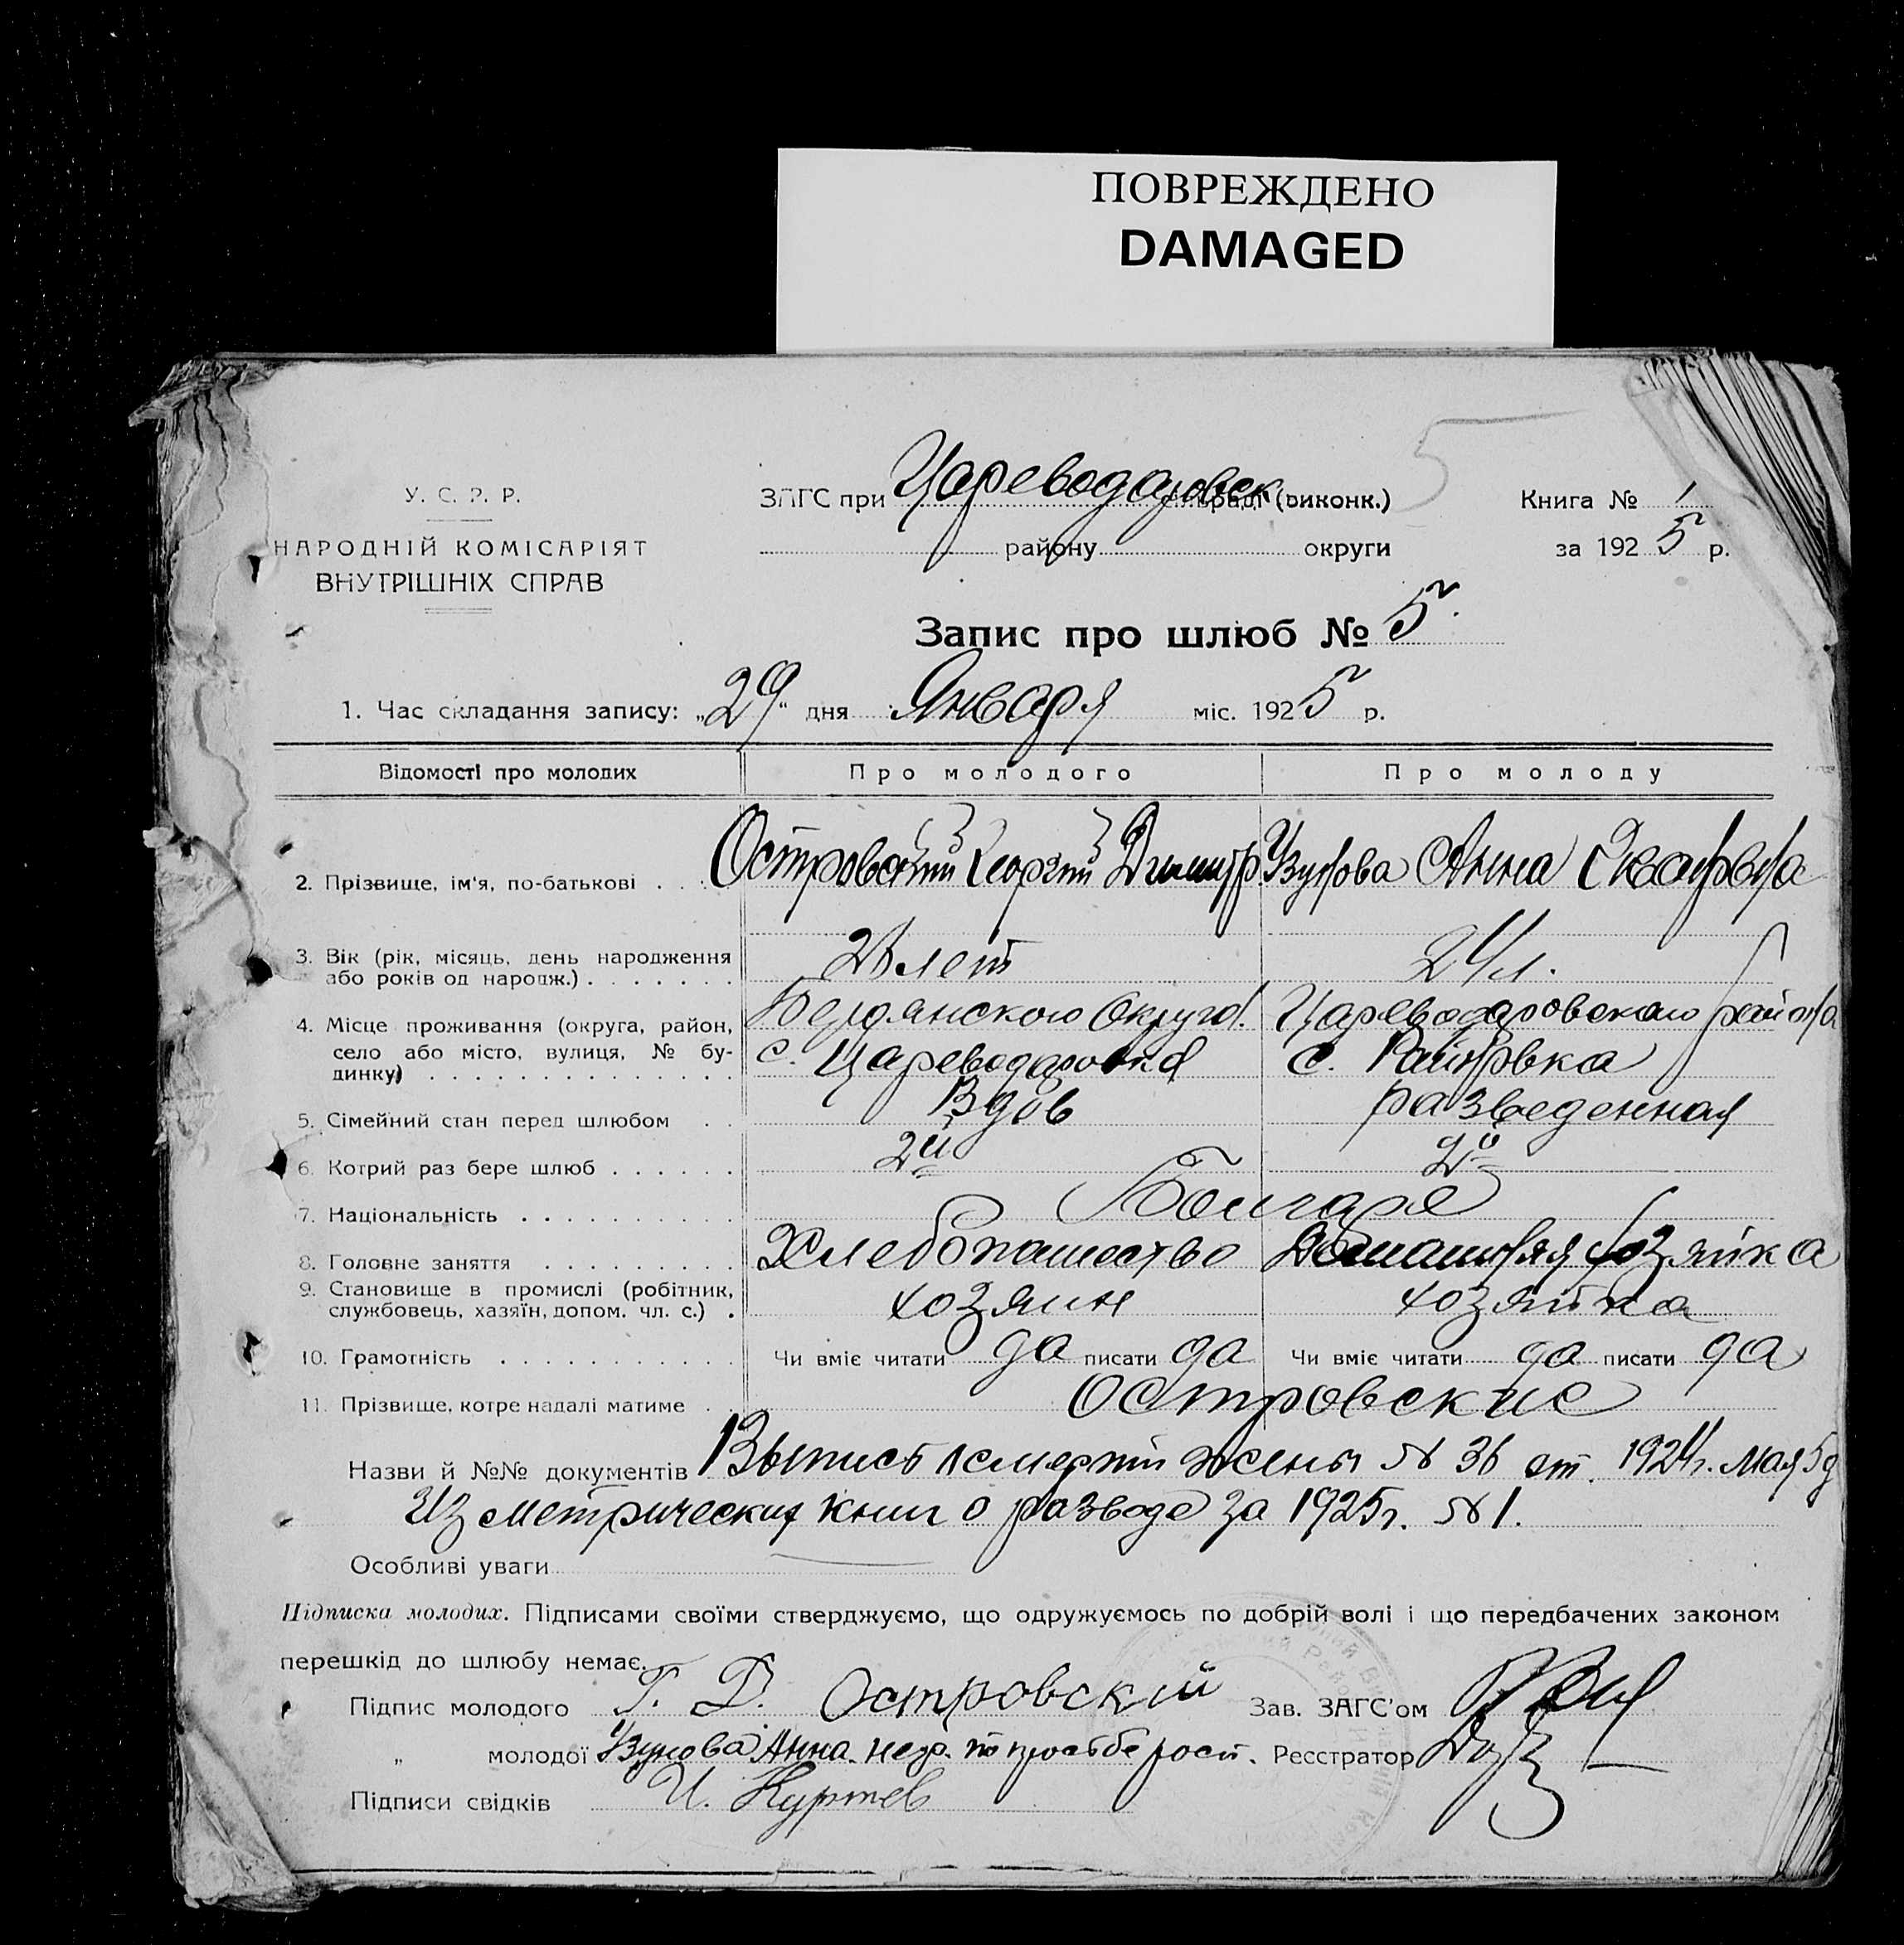 ПОВРЕЖДЕНО
DAMAGED
5
У. С. Р. Р.
НАРОДНІЙ КОМІСАРІЯТ
ВНУТРІШНІХ СПРАВ
ЗАГС при Цареводаровск. (виконк.)
району округи
Книга № 1
за 1925 р.
Запис про шлюб № 5
1. Час складання запису: „29“ дня Января міс. 1925 р.
Відомості про молодих Про молодого Про молоду
2. Прізвище, ім'я, по-батькові . . . Островский Георгий Димитр. Узунова Анна Ивановна
3. Вік (рік, місяць, день народження
або років од народж.) . . . . . . . лет 24 л.
4. Місце проживання (округа, район,
село або місто, вулиця, № бу-
динку) Бердянского Округа. Цареводаровского района
с. Цареводаровка с. Райновка
5. Сімейний стан перед шлюбом . . Вдов разведенная
6. Котрий раз бере шлюб . . . . . . 2й 2й
7. Національність . . . . . . . . . . Болгаре
8. Головне заняття . . . . . . . . . Хлебопашество Домашняя хозяйка
9. Становище в промислі (робітник,
службовець, хазяїн, допом. чл. с.) . хозяин хозяйка
10. Грамотність . . . . . . . . . . . Чи вміє читати да писати да Чи вміє читати да писати да
11. Прізвище, котре надалі матиме . . Островские
Назви й №№ документів Выпись о смерти жены № 36 от 1924г. мая 5д
Из метрических книг о разводе за 1925г. № 1.
Особливі уваги
Підписка молодих. Підписами своїми стверджуємо, що одружуємось по добрій волі і що передбачених законом
перешкід до шлюбу немає.
Підпис молодого Г. Д. Островский Зав. ЗАГС'ом
„ молодої Узунова Анна негр. по просьбе расп. Реєстратор
Підписи свідків И. Куртев